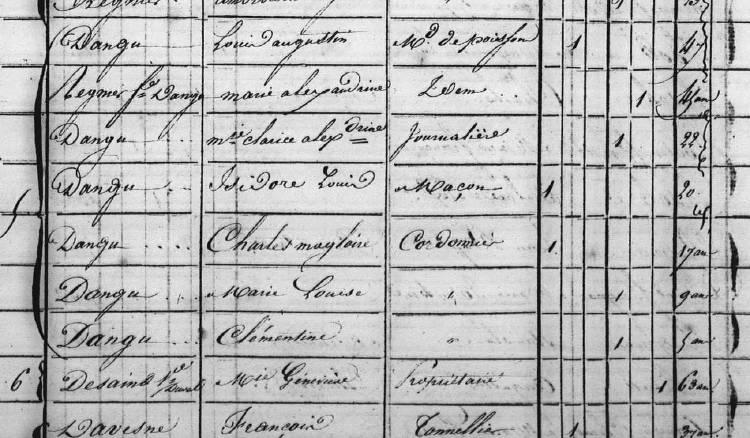 Dangu Louis augustin Md de poisson 1 47
Reymer fe Dangu marie alexandrine Idem 1 41 an
Dangu mie clarice alexdrine Journalière 1 22
Dangu Isidore Louis Maçon 1 20
5 Dangu Charles magloire Cordonnier 1 17 an
Dangu Marie Louise " 1 9 an
Dangu Clémentine " 1 5 an
6 Desaind Mie Géneviève Propriétaire 1 63 an
Davesne François Tonnellier 1